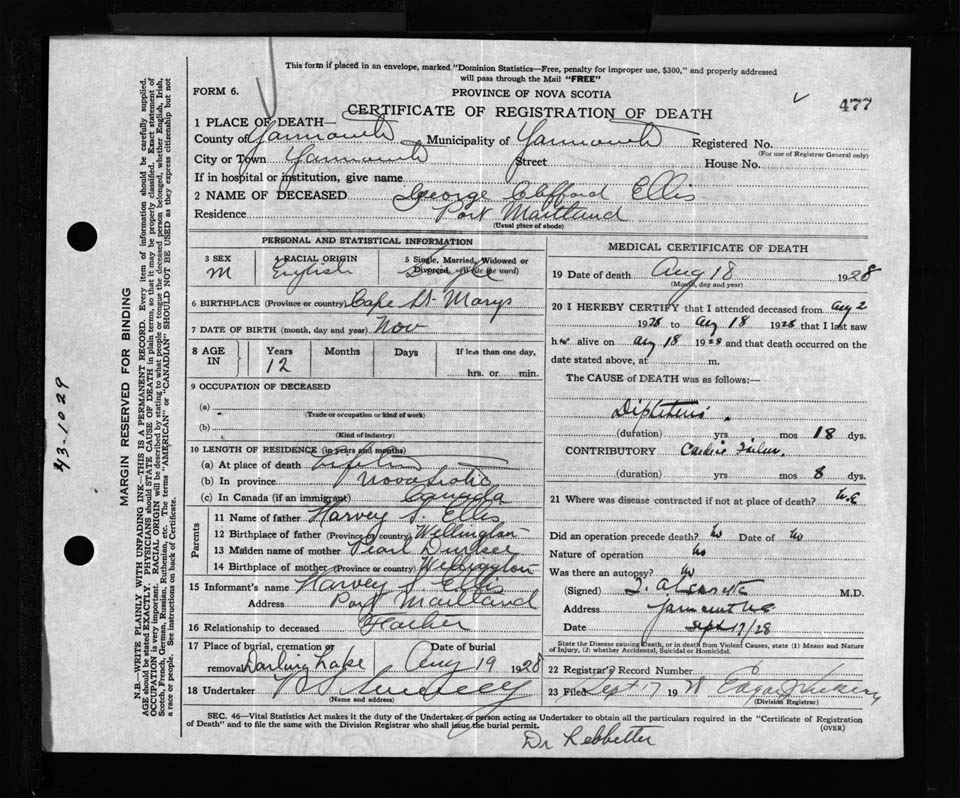 This form if placed in an envelope, marked "Dominion Statistics—Free, penalty for improper use, $300," and properly addressed
will pass through the Mail "FREE"
FORM 6.
PROVINCE OF NOVA SCOTIA
477
CERTIFICATE OF REGISTRATION OF DEATH
1 PLACE OF DEATH—
County of Yarmouth Municipality of Yarmouth Registered No.
(For use of Registrar General only)
City or Town Yarmouth Street House No.
If in hospital or institution, give name
2 NAME OF DECEASED George Clifford Ellis
Residence Port Maitland
(Usual place of abode)
PERSONAL AND STATISTICAL INFORMATION
3 SEX 4 RACIAL ORIGIN 5 Single, Married, Widowed or
Divorced, (Write the word)
M English Single
6 BIRTHPLACE (Province or country) Cape St Marys
7 DATE OF BIRTH (month, day and year) Nov
8 AGE IN Years Months Days If less than one day,
12 hrs. or min.
9 OCCUPATION OF DECEASED
(a)
(Trade or occupation or kind of work)
(b)
(Kind of industry)
10 LENGTH OF RESIDENCE (in years and months)
(a) At place of death
(b) In province Nova Scotia
(c) In Canada (if an immigrant) Canada
Parents
11 Name of father Harvey S. Ellis
12 Birthplace of father (Province or country) Wellington
13 Maiden name of mother Pearl
14 Birthplace of mother (Province or country) Wellington
15 Informant's name Harvey S Ellis
Address Port Maitland
16 Relationship to deceased Father
17 Place of burial, cremation or removal Date of burial
Darling Lake Aug 19 1928
18 Undertaker
(Name and address)
MEDICAL CERTIFICATE OF DEATH
19 Date of death Aug 18 1928
(Month, day and year)
20 I HEREBY CERTIFY that I attended deceased from Aug 2
1928 to Aug 18 1928 that I last saw
h alive on Aug 18 1928 and that death occurred on the
date stated above, at m.
The CAUSE OF DEATH was as follows:—
Diphtheria.
(duration) yrs mos 18 dys.
CONTRIBUTORY Cardiac Failure.
(duration) yrs mos 8 dys.
21 Where was disease contracted if not at place of death?
Did an operation precede death? no Date of no
Nature of operation no
Was there an autopsy? no
(Signed) M.D.
Address Yarmouth N.S.
Date Sept 17/28
State the Disease causing Death, or in death from Violent Causes, state (1) Means and Nature
of Injury, (2) whether Accidental, Suicidal or Homicidal.
22 Registrar's Record Number
23 Filed Sept 17 1928
(Division Registrar)
SEC. 46—Vital Statistics Act makes it the duty of the Undertaker or person acting as Undertaker to obtain all the particulars required in the "Certificate of Registration
of Death" and to file the same with the Division Registrar who shall issue the burial permit.
(OVER)
Dr Rebbetter
3/3-1029
MARGIN RESERVED FOR BINDING
N.B.—WRITE PLAINLY WITH UNFADING INK—THIS IS A PERMANENT RECORD. Every item of information should be carefully supplied.
AGE should be stated EXACTLY. PHYSICIANS should STATE CAUSE OF DEATH in plain terms, so that it may be properly classified. Exact statement of
OCCUPATION is very important. RACIAL ORIGIN will be described by stating to what people or tongue the deceased person belonged, whether English, Irish,
Scotch, French, German, Russian, Ruthenian, etc. The terms "AMERICAN" or "CANADIAN" SHOULD NOT BE USED as they express citizenship but not
a race or people. See instructions on back of Certificate.